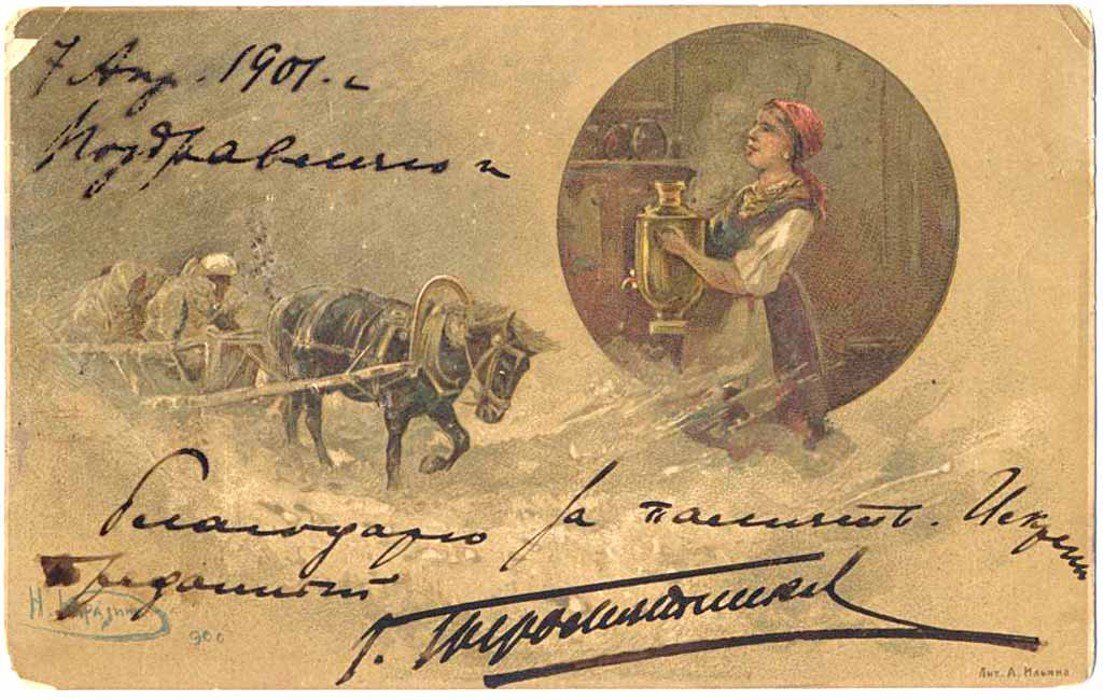 7 Апр. 1901. г
Поздравляю и
благодарю за память. Искрен
преданный
Н. Каразин
900
Лит. А. Ильина